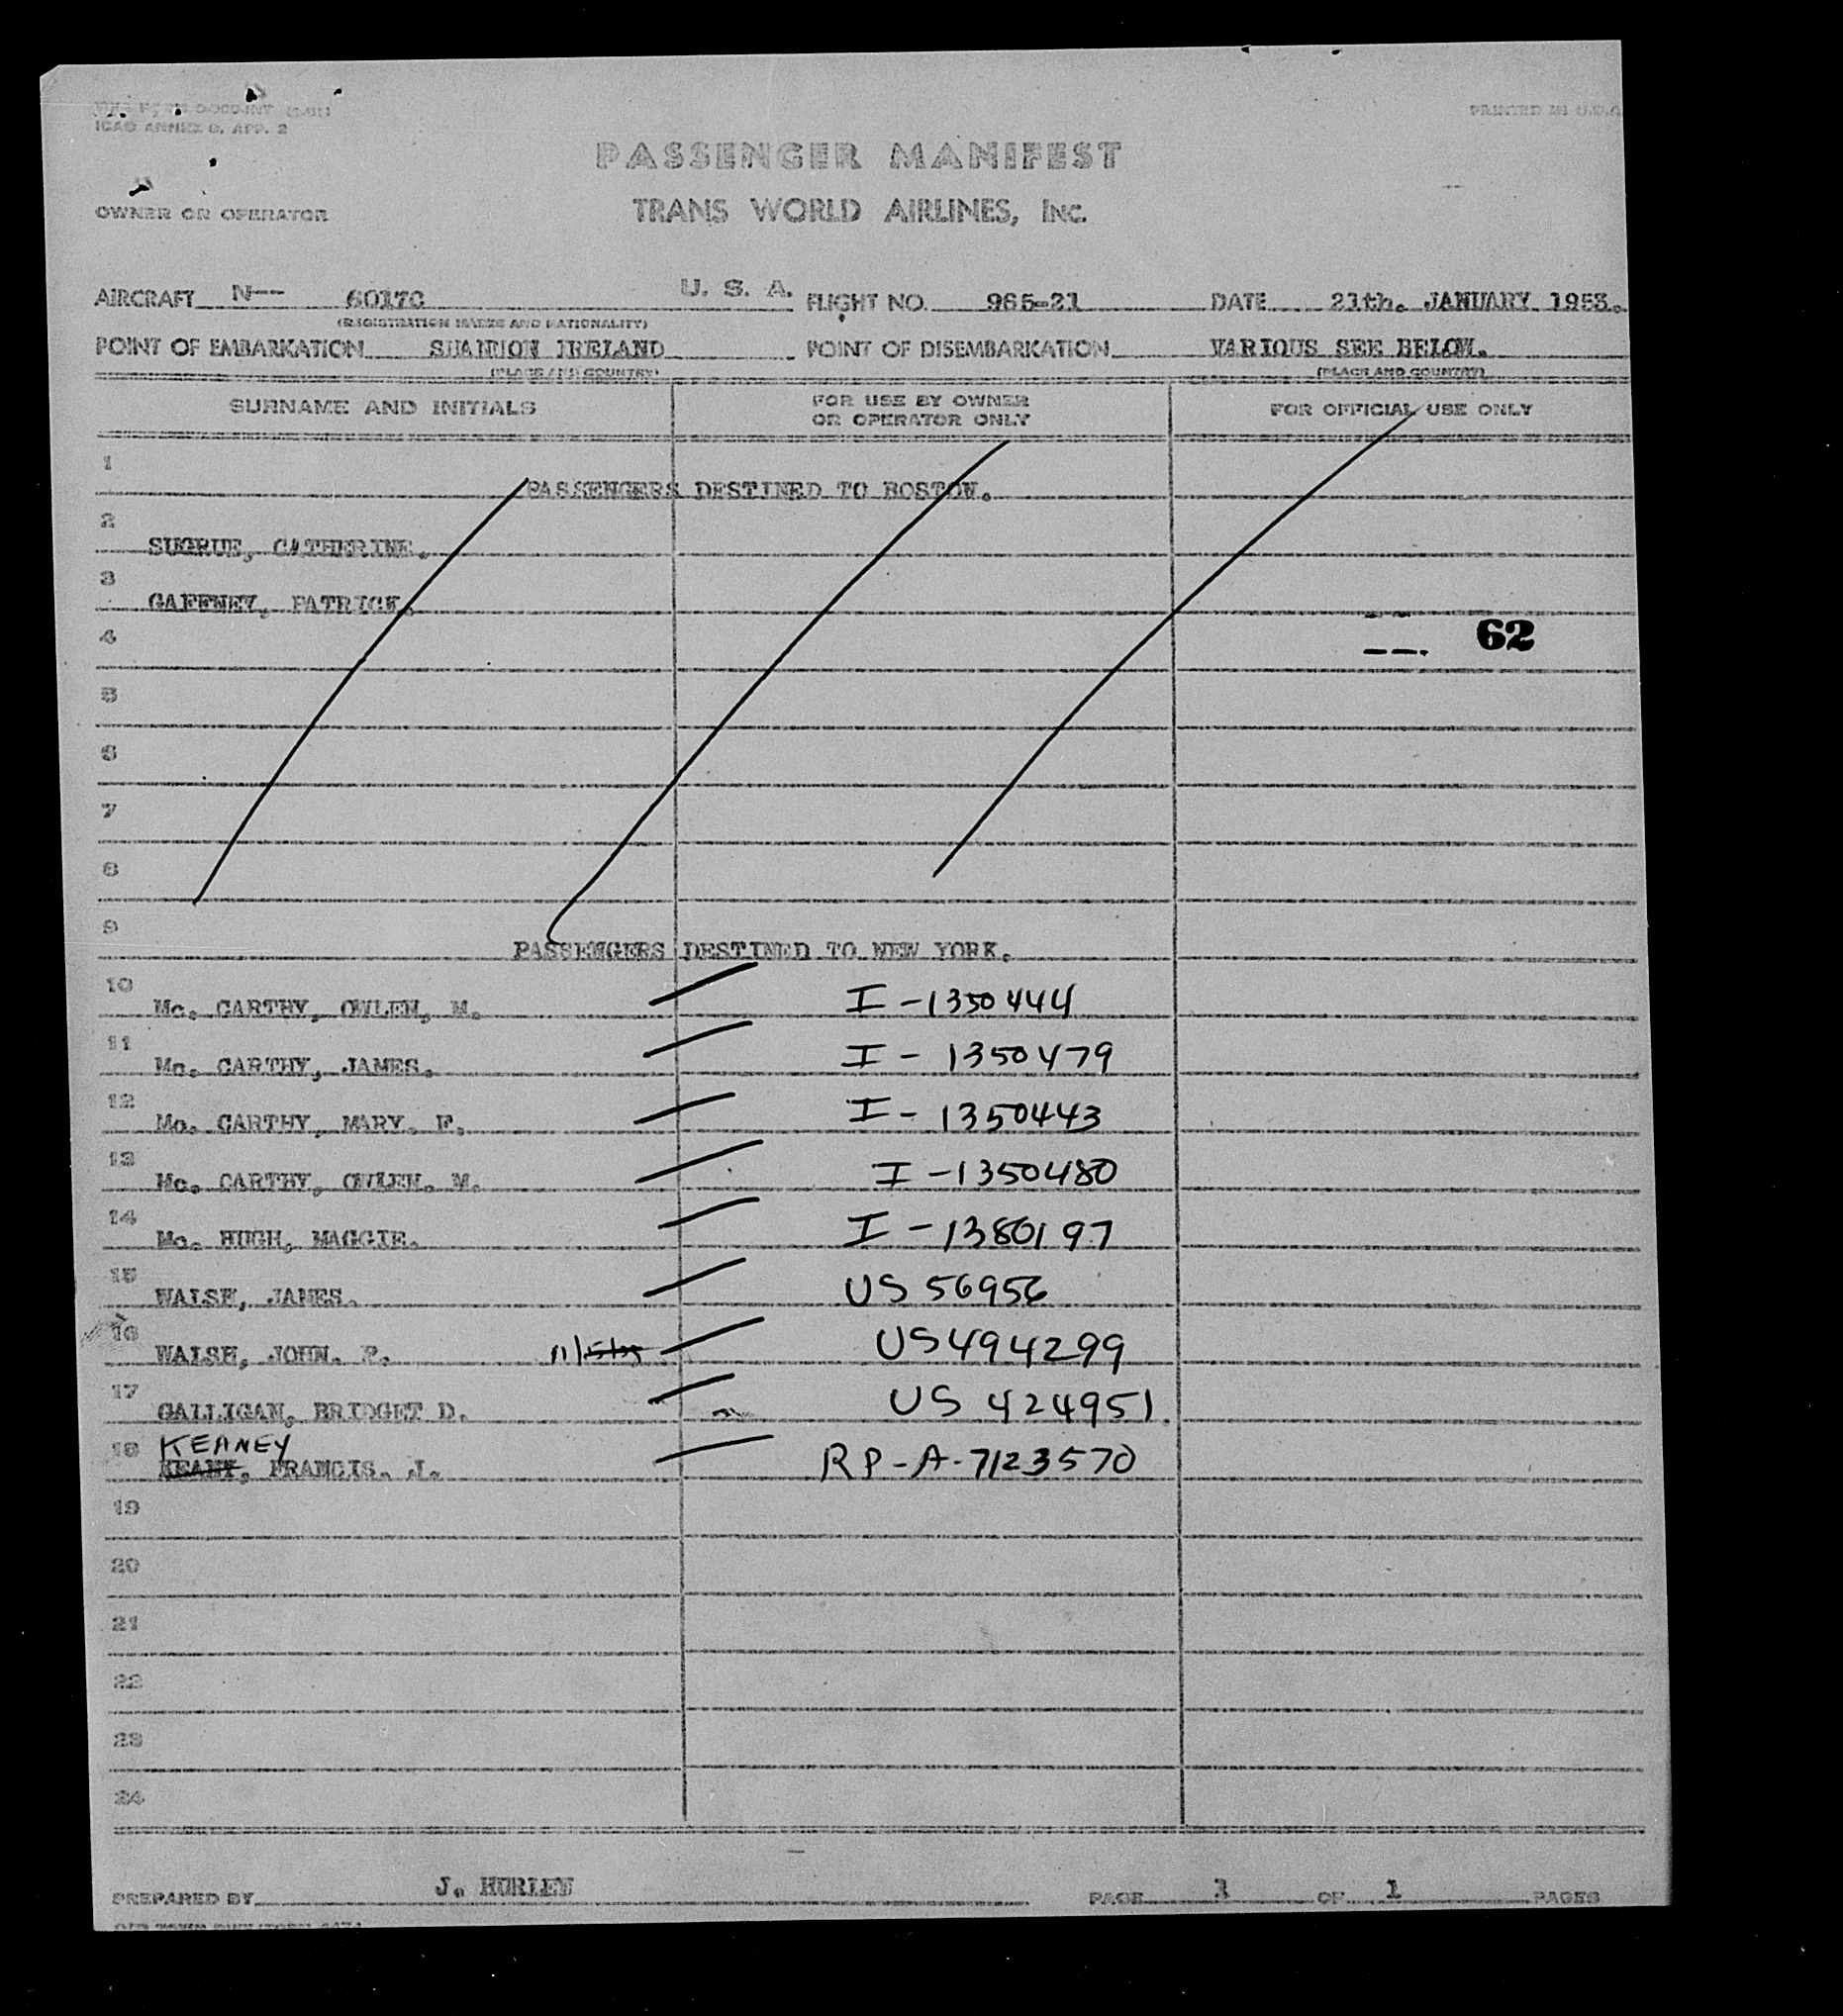 ICAO ANNEX 9, APP. 2
PRINTED IN U.S.A.
PASSENGER MANIFEST
OWNER OR OPERATOR TRANS WORLD AIRLINES, Inc.
AIRCRAFT N-- 6017C U. S. A. FLIGHT NO. 965-21 DATE 21th. JANUARY 1953.
(REGISTRATION MARKS AND NATIONALITY)
POINT OF EMBARKATION SHANNON IRELAND POINT OF DISEMBARKATION VARIOUS SEE BELOW.
(PLACE AND COUNTRY) (PLACE AND COUNTRY)
SURNAME AND INITIALS FOR USE BY OWNER OR OPERATOR ONLY FOR OFFICIAL USE ONLY
1 PASSENGERS DESTINED TO BOSTON.
2 SUGRUE, CATHERINE.
3 GAFFNEY, PATRICK.
4 62
5
6
7
8
9 PASSENGERS DESTINED TO NEW YORK.
10 Mc. CARTHY, OWLEN, M. I-1350444
11 Mc. CARTHY, JAMES. I-1350479
12 Mc. CARTHY, MARY. F. I-1350443
13 Mc. CARTHY, OWLEN. M. I-1350480
14 Mc. HUGH, MAGGIE. I-1380197
15 WALSH, JAMES. US 56956
16 WALSH, JOHN. P. US494299
17 GALLIGAN, BRIDGET D. US 424951
KEANEY
18 KEANY, FRANCIS. J. RP-A-7123570
19
20
21
22
23
24
PREPARED BY J. HURLEY PAGE 1 OF 1 PAGES